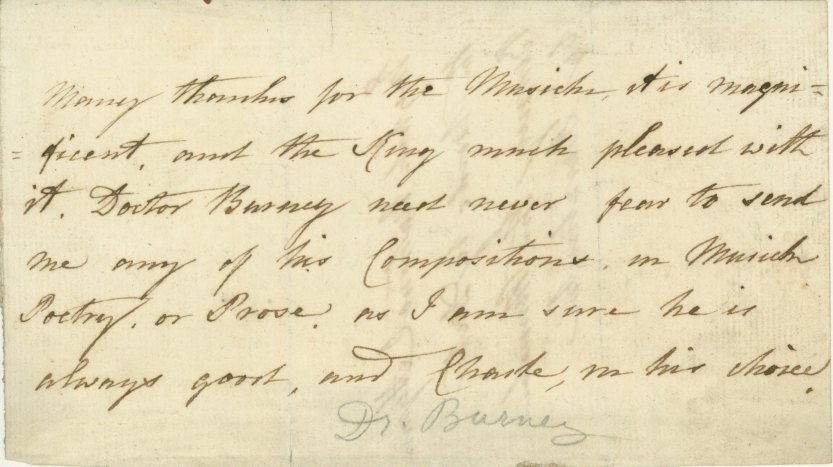 Many thanks for the Musick, it is magni=
=ficent, and the King much pleased with
it. Doctor Burney need never fear to send
me any of his Compositions, in Musick
Poetry, or Prose, as I am sure he is
always good, and Chaste, in his choice.
Dr. Burney